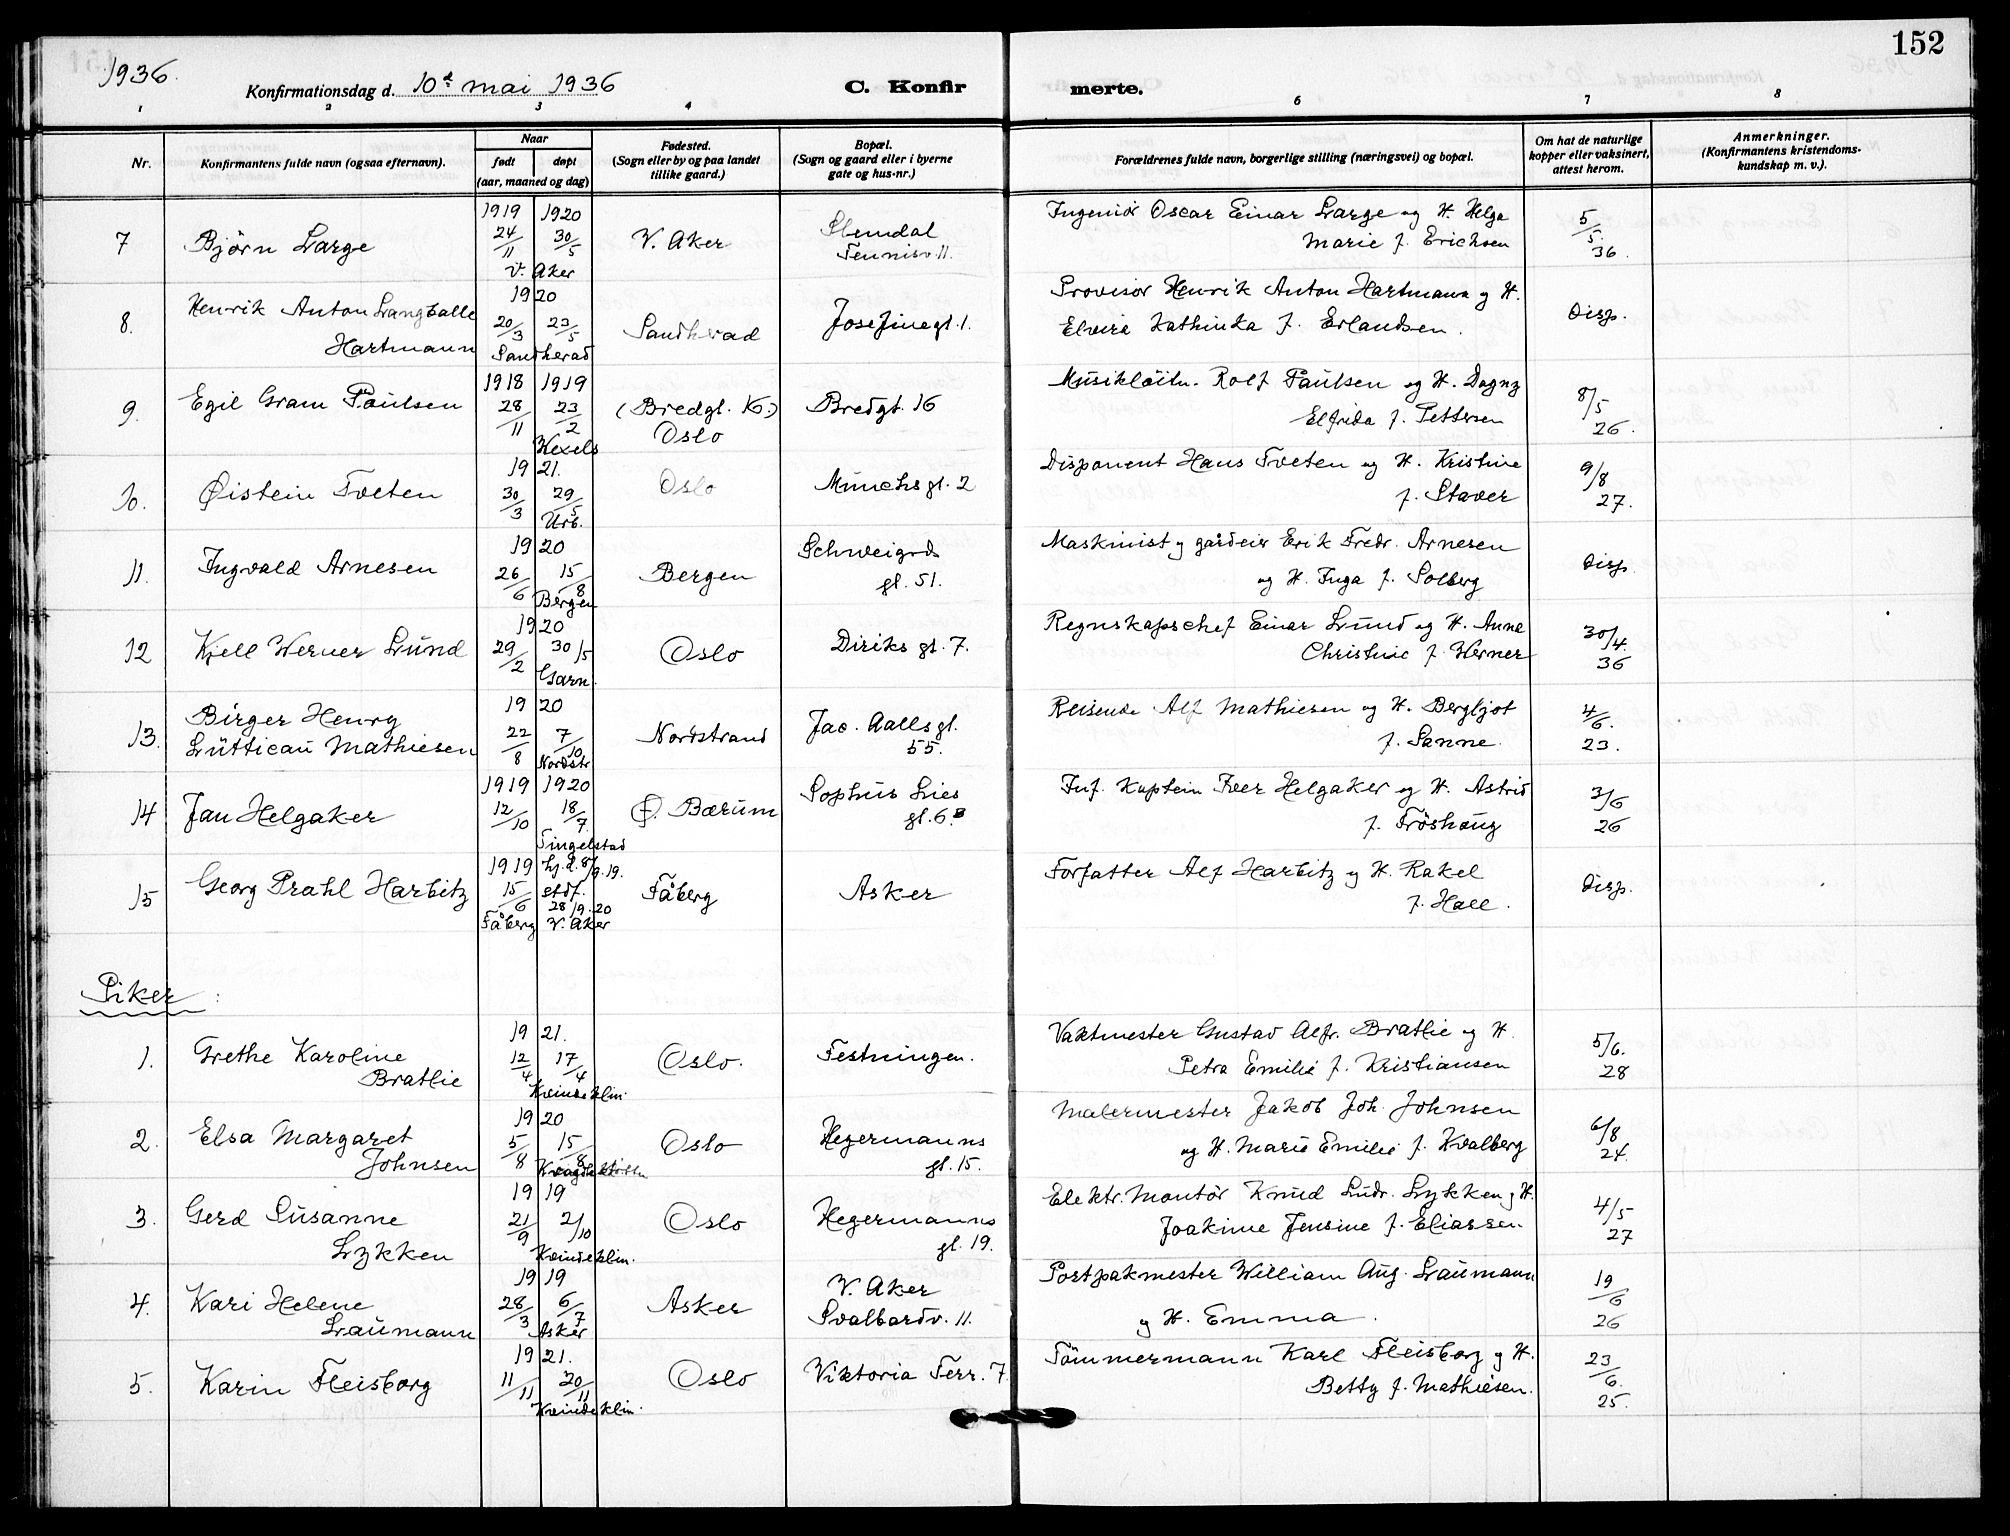 152
1936.
Konfirmationsdag d. 10d mai 1936
C. Konfir merte.
1 2 3 4 6 7 8
Nr.
Konfirmantens fulde navn (ogsaa efternavn).
Naar
født døpt
(aar, maaned og dag)
Fødested.
(Sogn eller by og paa landet
tillike gaard.)
Bopæl.
(Sogn og gaard eller i byerne
gate og hus-nr.)
Forældrenes fulde navn, borgerlige stilling (næringsvei) og bopæl.
Om hat de naturlige
kopper eller vaksinert,
attest herom.
Anmerkninger.
(Konfirmantens kristendoms-
kundskap m. v.).
7 Björn Large 1919 24/11 1920 30/5 V. Aker
V. Aker
Slemdal
Tennisv. 11.
Ingeniör Oscar Einar Large og H. Helga
Marie f. Erichsen
5/5 36.
8. Henrik Anton Langballe
Hartmann
1920 20/3 23/5 Sandherad
Sandherad
Josefinegt. 1.
Provisor Henrik Anton Hartmann og H.
Elvira Kathinka f. Erlandsen.
Disp.
9. Egil Gram Paulsen
1918 28/11 1919 23/2 Wexels
(Bredgt. K.)
Oslo
Bredgt. 16
Musiklöitn. Rolf Paulsen og H. Dagny
Elfrida f. Pettersen
8/5 26.
10. Øistein Tveten
1921. 30/3 29/5 Urb.
Oslo
Munchs gt. 2
Disponent Hans Tveten og H. Kristine
f. Staver
9/8 27.
11. Ingvald Arnesen
1920 26/6 15/8 Bergen
Bergen
Schweigrds
gt. 51.
Maskinist og gårdeier Erik Fredr. Arnesen
og H. Inga f. Solberg
Disp.
12 Kjell Werner Lund
1920 29/2 30/5 Garn.
Oslo
Diriks gt. 7.
Regnskapschef Einar Lund og H. Anna
Christine f. Werner
30/4. 36
13. Birger Henry
Lütticau Mathiesen
1920 22/8 7/10 Nordstr
Nordstrand
Jac. Aalls gt.
55.
Reisende Alf Mathiesen og H. Bergljot
f. Sanne.
4/6. 23.
14 Jan Helgaker
1919 12/10 1920 18/7. Tingelstad
Ø. Bærum
Sophus Lies
gt. 6.B
Inf. Kaptein Iver Helgaker og H. Astrid
f. Fröshaug
3/6 26
15 Georg Prahl Harbitz
1919 15/6 Fåberg
hj. d. 8/9. 19.
stdf.
28/9. 20
V. Aker
Fåberg
Asker
Forfatter Alf Harbitz og H. Rakel
f. Hall.
Disp.
Piker:
1. Grethe Karoline
Bratlie
1921. 12/4 17/4 Kvindeklin.
Oslo.
Festningen.
Vaktmester Gustav Alfr. Bratlie og H.
Petra Emilie f. Kristiansen
5/6. 28
2. Elsa Margaret
Johnsen
1920 5/8 15/8
Oslo
Hegermanns
gt. 15.
Malermester Jakob Joh. Johnsen
og H. Marie Emilie f. Kvalberg
6/8 24.
3. Gerd Susanne
Lykken
1919 21/9 2/10 Kvindeklin.
Oslo
Hegermanns
gt. 19.
Elektr. Montör Knud Ludv. Lykken og H.
Joakime Jensine f. Eliassen
4/5 27
4. Kari Helene
Laumann
1919 28/3 6/7 Asker
Asker
V. Aker
Svalbardv. 11.
Postpakmester William Aug. Laumann
og H. Emma.
19/6 26
5. Karin Fleisborg
1921. 11/11 20/11 Kvindeklin.
Oslo
Viktoria Terr. 7.
Tömmermann Karl Fleisborg og H.
Betty f. Mathiesen.
23/6. 25.